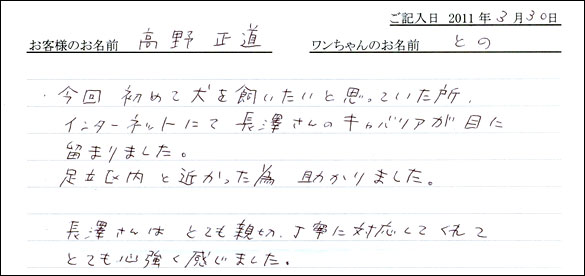 ご記入日 2011年3月30日
お客様のお名前 高野 正道 ワンちゃんのお名前 との
・今回 初めて犬を飼いたいと思っていた所、
インターネットにて 長澤さんのキャバリアが目に
留まりました。
足立区内と近かった為 助かりました。
長澤さんは とても親切、丁寧に対応してくれて
とても心強く感じました。